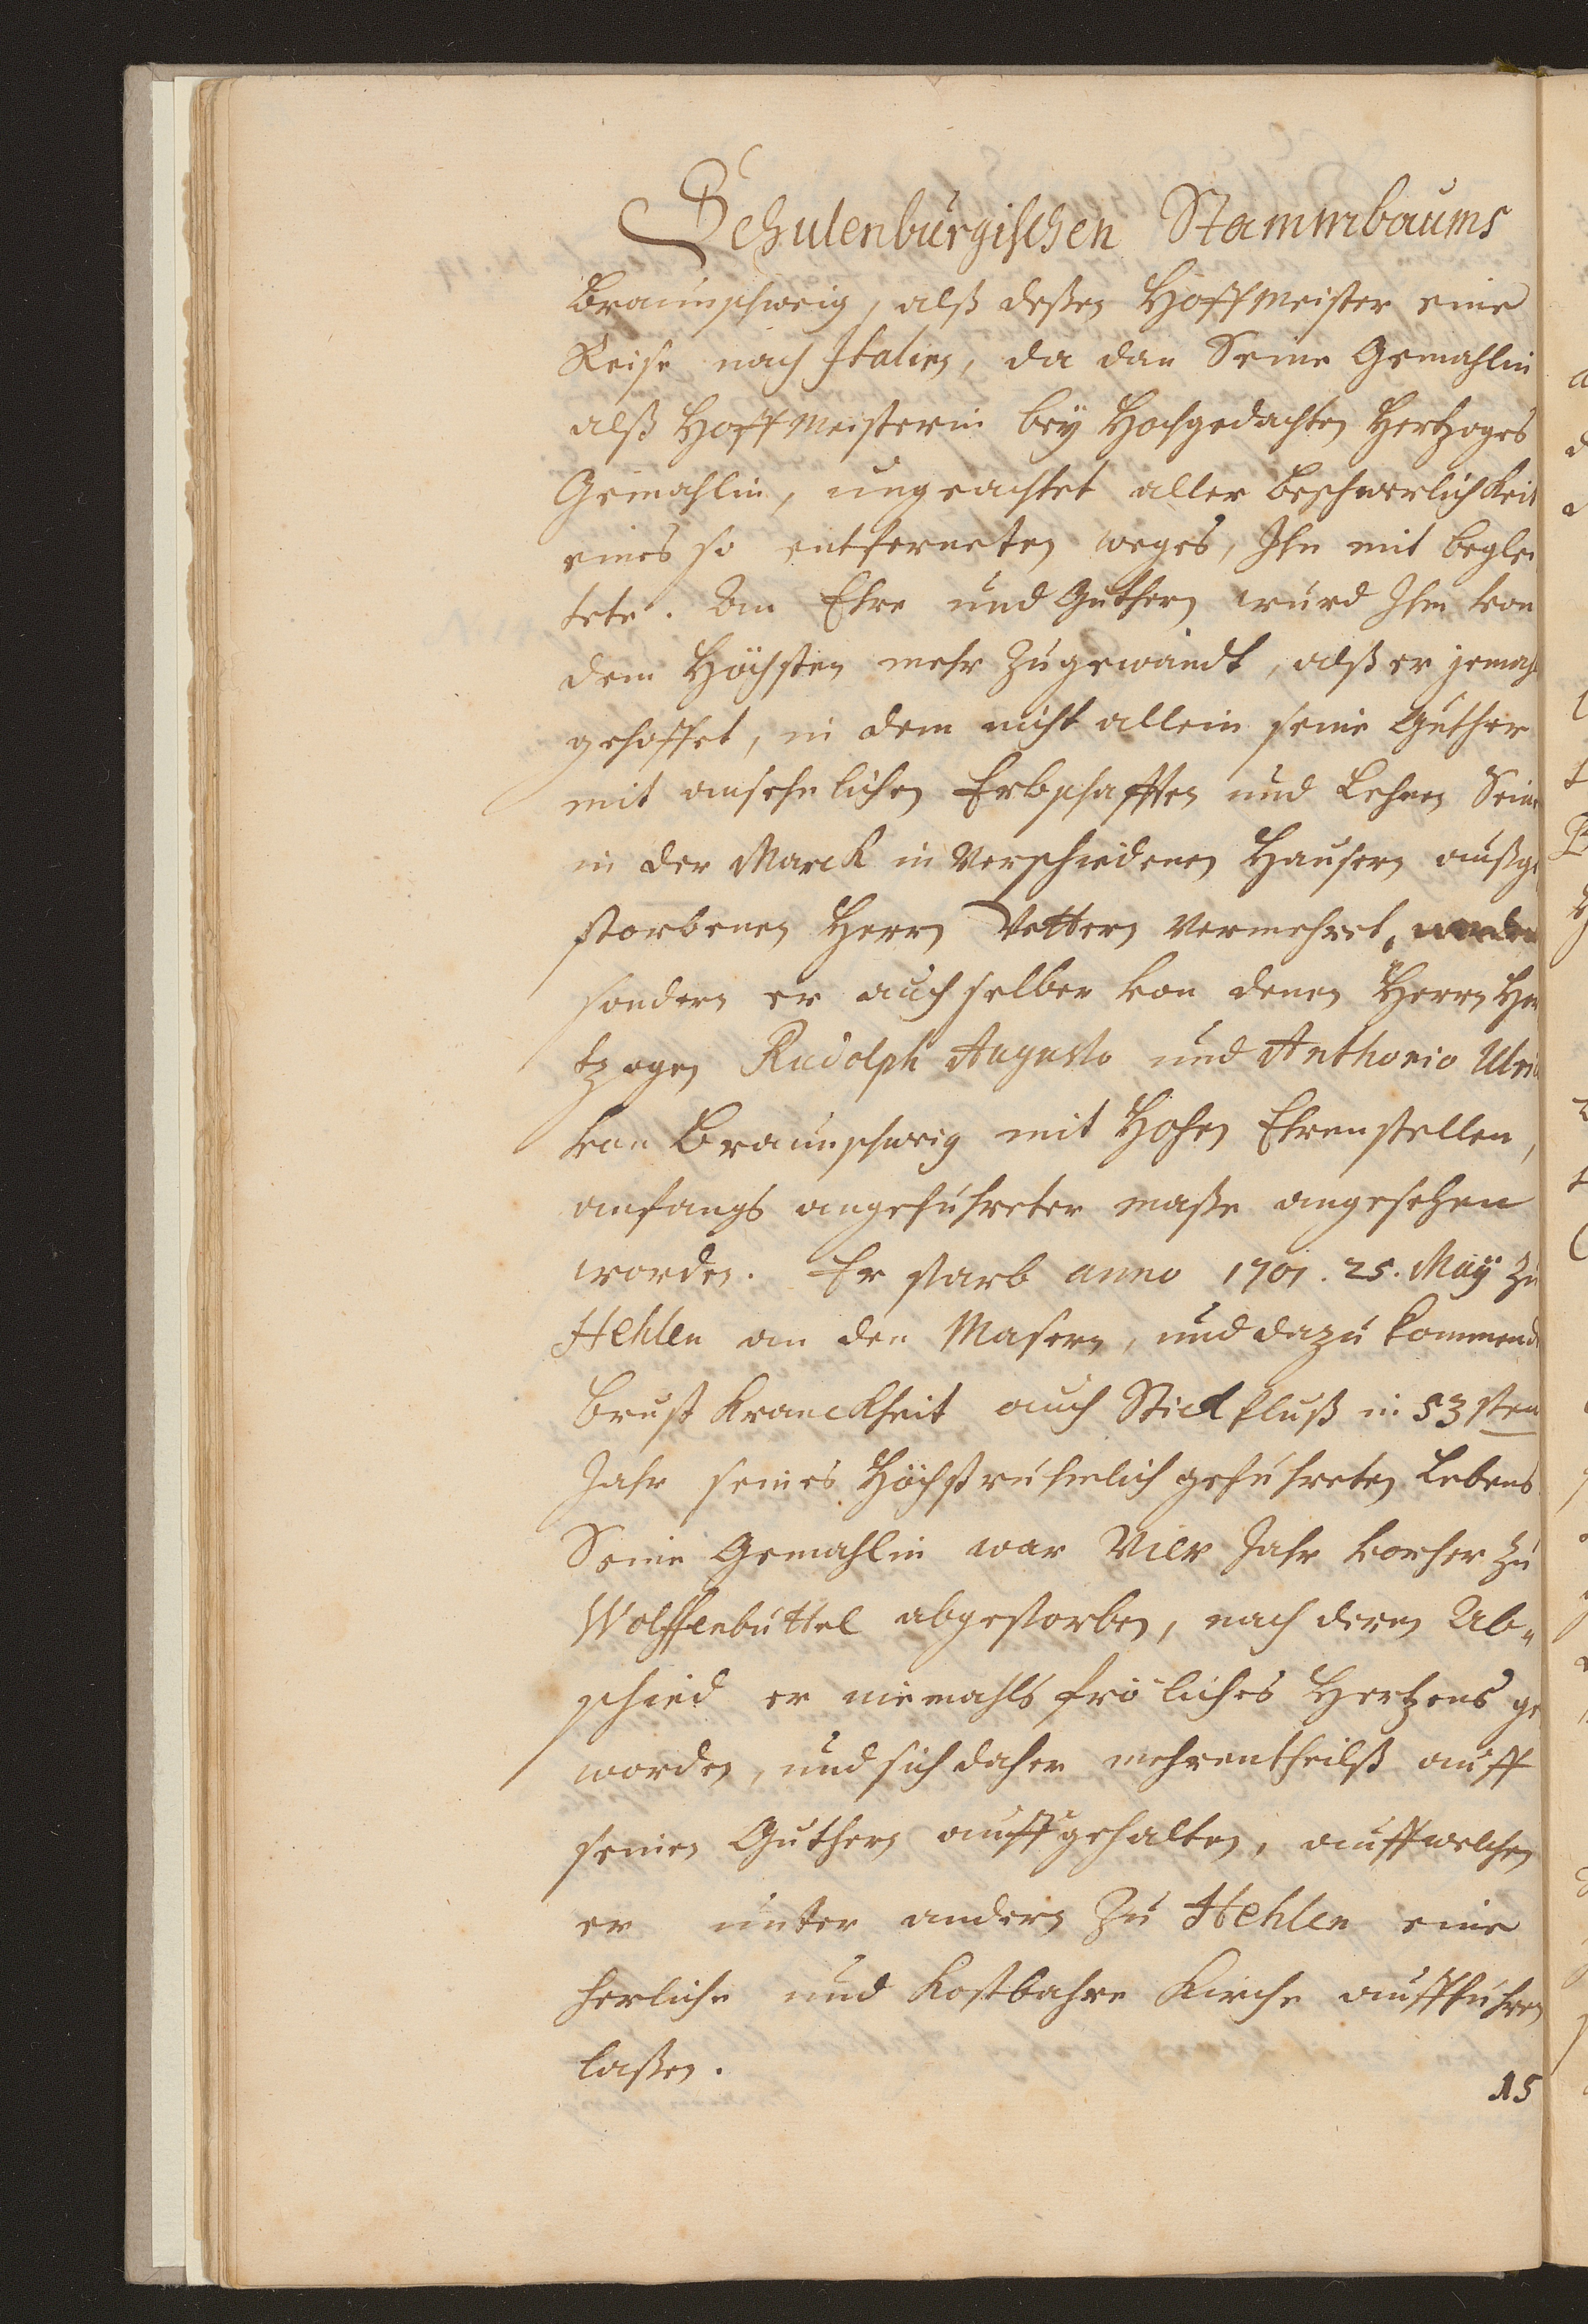 Schulenburgischen Stammbaums
Braunschweig, alß deßen Hoffmeister eine
Reise nach Italien, da dan Seine Gemahlin
alß Hoffmeisterin beÿ Hochgedachten Hertzoges
Gemahlin, ungeachtet aller beschwerlichkeit
eines so entferneten weges, Ihn mit beglei
tete. An Ehre und Güthern wurd Ihm von
dem Höchsten mehr zugewandt, alß er jemahl
gehoffet, in dem nicht allein seine Güther
mit ansehnlichen Erbschafften und Lehnen Seiner
in der Marck in Verschiedenen Häusern außge
storbenen Herrn Vettern Vermehret,
sondern er auch selber von denen Herrn Her
tzogen Rudolph Augusto und Anthonio Ulri
von Braunschweig mit Hohen Ehrenstellen,
anfangs angeführeter maße angesehen
worden. Er starb anno 1701. 25. Maÿ zu
Hehlen an den Masern, und dazu kommende
Brust Kranckheit auch Stickfluß in 53sten
Jahr seines Höchstrühmlich geführeten Lebens
Seine Gemahlin war Vier Jahr vorher zu
Wolffenbüttel abgestorben, nach deren Ab=
schied er niemahls fröliches Hertzens ge
worden, und sich daher mehrentheilß auff
seinen Güthern auffgehalten, auff welchen
er unter andern zu Hehlen eine
herliche und Kostbahre Kirche aufführen
laßen.
15